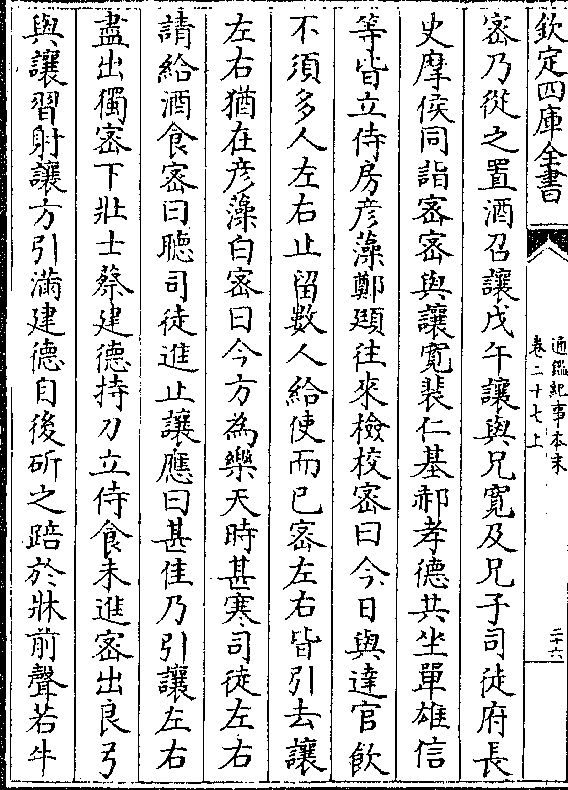 欽定四庫全書
通鑑紀事本末
卷二十七上
二十六
密乃從之置酒召讓戊午讓與兄寛及兄子司徒府長
史摩侯同詣密密與讓寛裴仁基郝孝德共坐單雄信
等皆立侍房彦藻鄭頲往來檢校密曰今日與達官飲
不須多人左右止留數人給使而已密左右皆引去讓
左右猶在彦藻白密曰今方為樂天時甚寒司徒左右
請給酒食密曰聽司徒進止讓應曰甚佳乃引讓左右
盡出獨密下壯士蔡建德持刀立侍食未進密出良弓
與讓習射讓方引滿建德自後斫之踣於牀前聲若牛